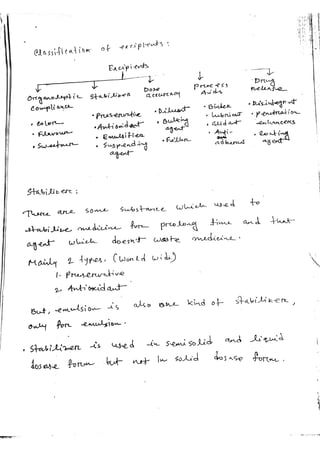 Classification of excipients :
Excipients
Organoleptic compliance
• Color
• Flavour
• Sweetner
Stabilizer
• Preservative
• Antioxidant
• Emulsifier
• Suspending agent
Dose accuracy
• Diluent
• Bulking agent
• Filler
Process Aids
• Binder
• Lubricant
• Glidant
• Anti-adherent
Drug Release
• Disintegrant
• Penetration enhancers
• Coating agent
Stabilizer :
There are some substance which used to
stabilize medicine for prolong time and that
agent which doesn't waste medicine.
Mainly 2 types. (World wide)
1. Preservative
2. Antioxidant
But, emulsion is also one kind of stabilizer,
only for emulsion.
• Stabilizer is used in semisolid and liquid
dosage form but not in solid dosage form.